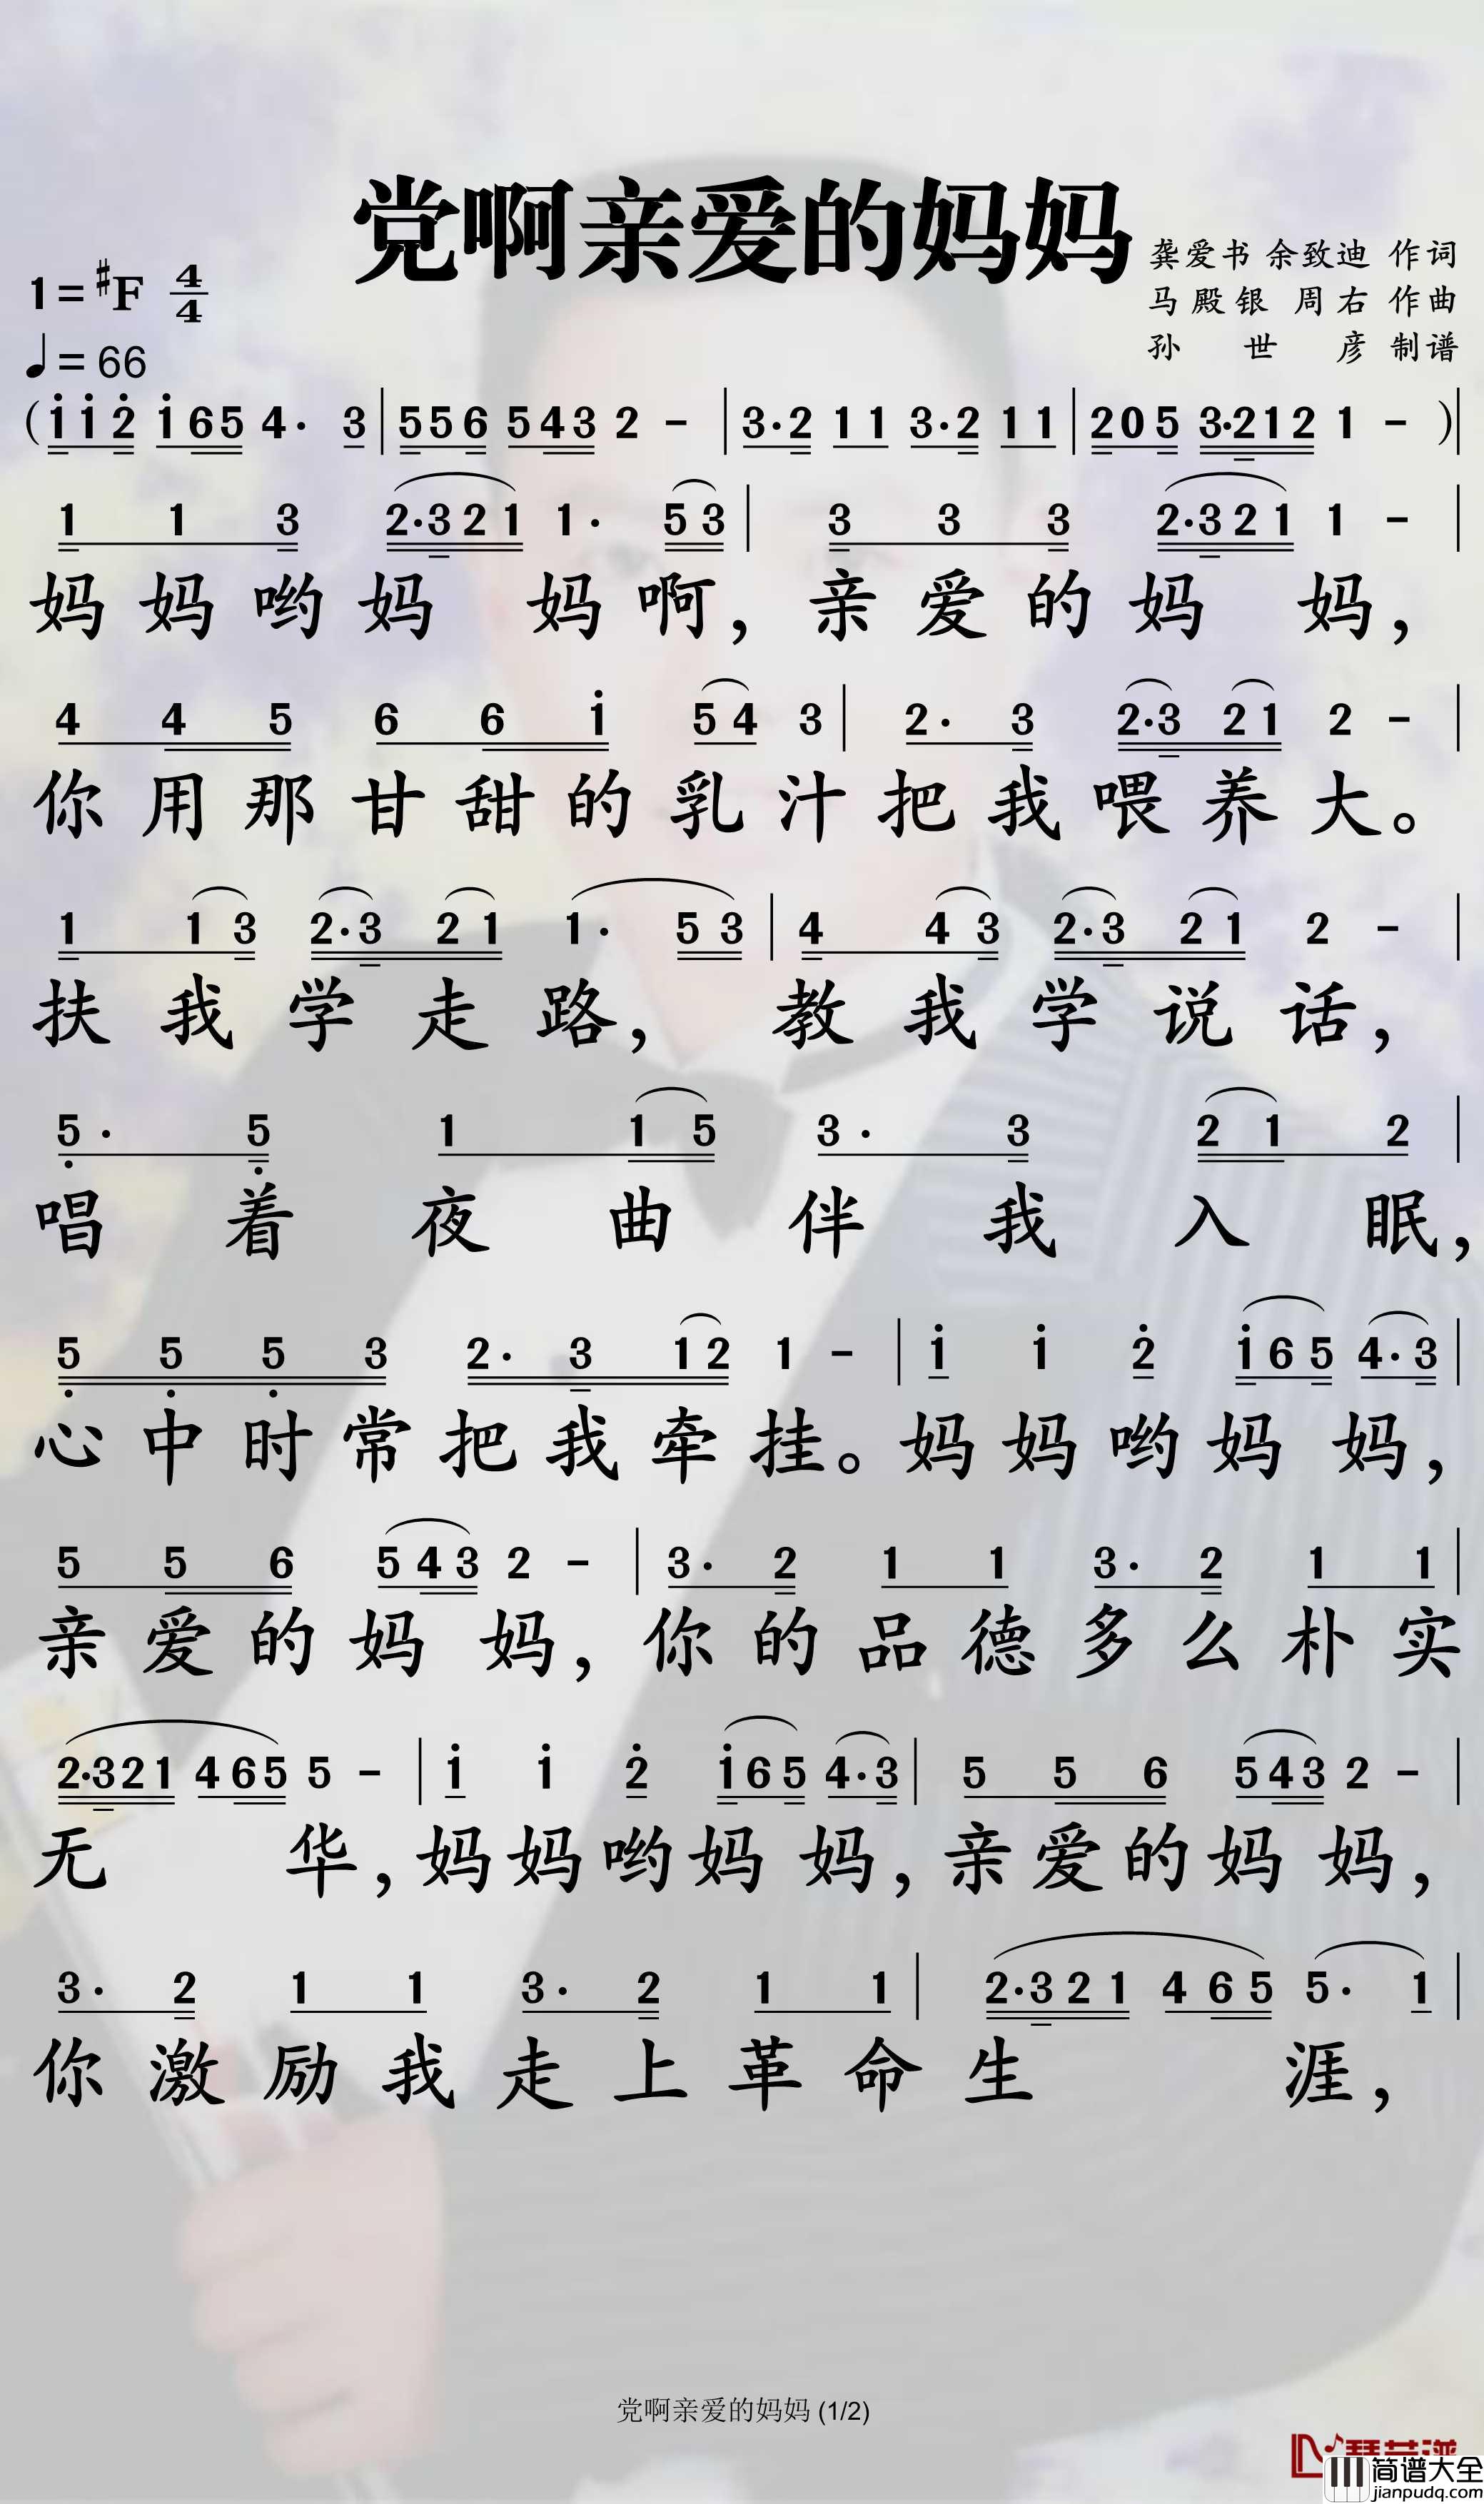 党啊亲爱的妈妈
龚爱书 余致迪 作词
1=♯F 4/4
马殿银 周右 作曲
孙世彦 制谱
♩=66
(i̇ i̇ 2̇ i̇ 6 5 4· 3 | 5 5 6 5 4 3 2 - | 3· 2 1 1 3· 2 1 1 | 2 0 5 3· 2 1 2 1 - ) |
1 1 3 2· 3 2 1 1· 5 3 | 3 3 3 2· 3 2 1 1 - |
妈妈哟妈 妈啊，亲爱的妈 妈，
4 4 5 6 6 i̇ 5 4 3 | 2· 3 2· 3 2 1 2 - |
你用那甘甜的乳汁把我喂养大。
1 1 3 2· 3 2 1 1· 5 3 | 4 4 3 2· 3 2 1 2 - |
扶我学走路，教我学说话，
5̣· 5̣ 1 1 5 3· 3 2 1 2 |
唱着夜曲伴我入眠，
5̣ 5̣ 5̣ 3 2· 3 1 2 1 - | i̇ i̇ 2̇ i̇ 6 5 4· 3 |
心中时常把我牵挂。妈妈哟妈 妈，
5 5 6 5 4 3 2 - | 3· 2 1 1 3· 2 1 1 |
亲爱的妈 妈，你的品德多么朴实
2· 3 2 1 4 6 5 5 - | i̇ i̇ 2̇ i̇ 6 5 4· 3 | 5 5 6 5 4 3 2 - |
无 华，妈妈哟妈 妈，亲爱的妈 妈，
3· 2 1 1 3· 2 1 1 | 2· 3 2 1 4 6 5 5· 1 |
你激励我走上革命生 涯，
党啊亲爱的妈妈 (1/2)
简谱大全
jianpudq.com